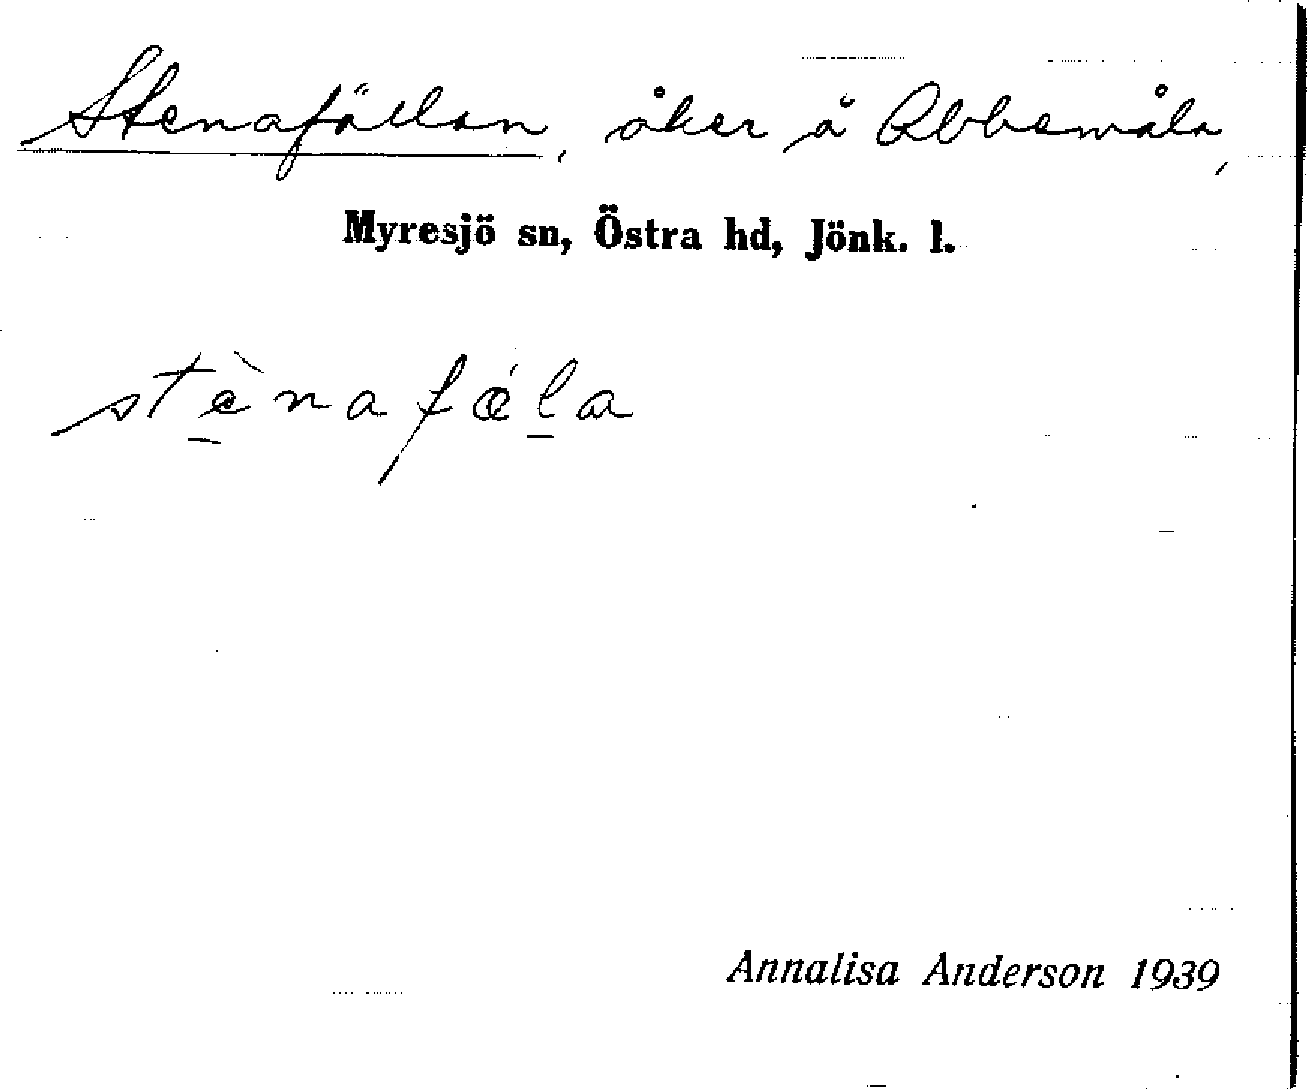 Stenafällan, åker å Abbemåla,
Myresjö sn, Östra hd, Jönk. l.
stènafǽla
Annalisa Anderson 1939